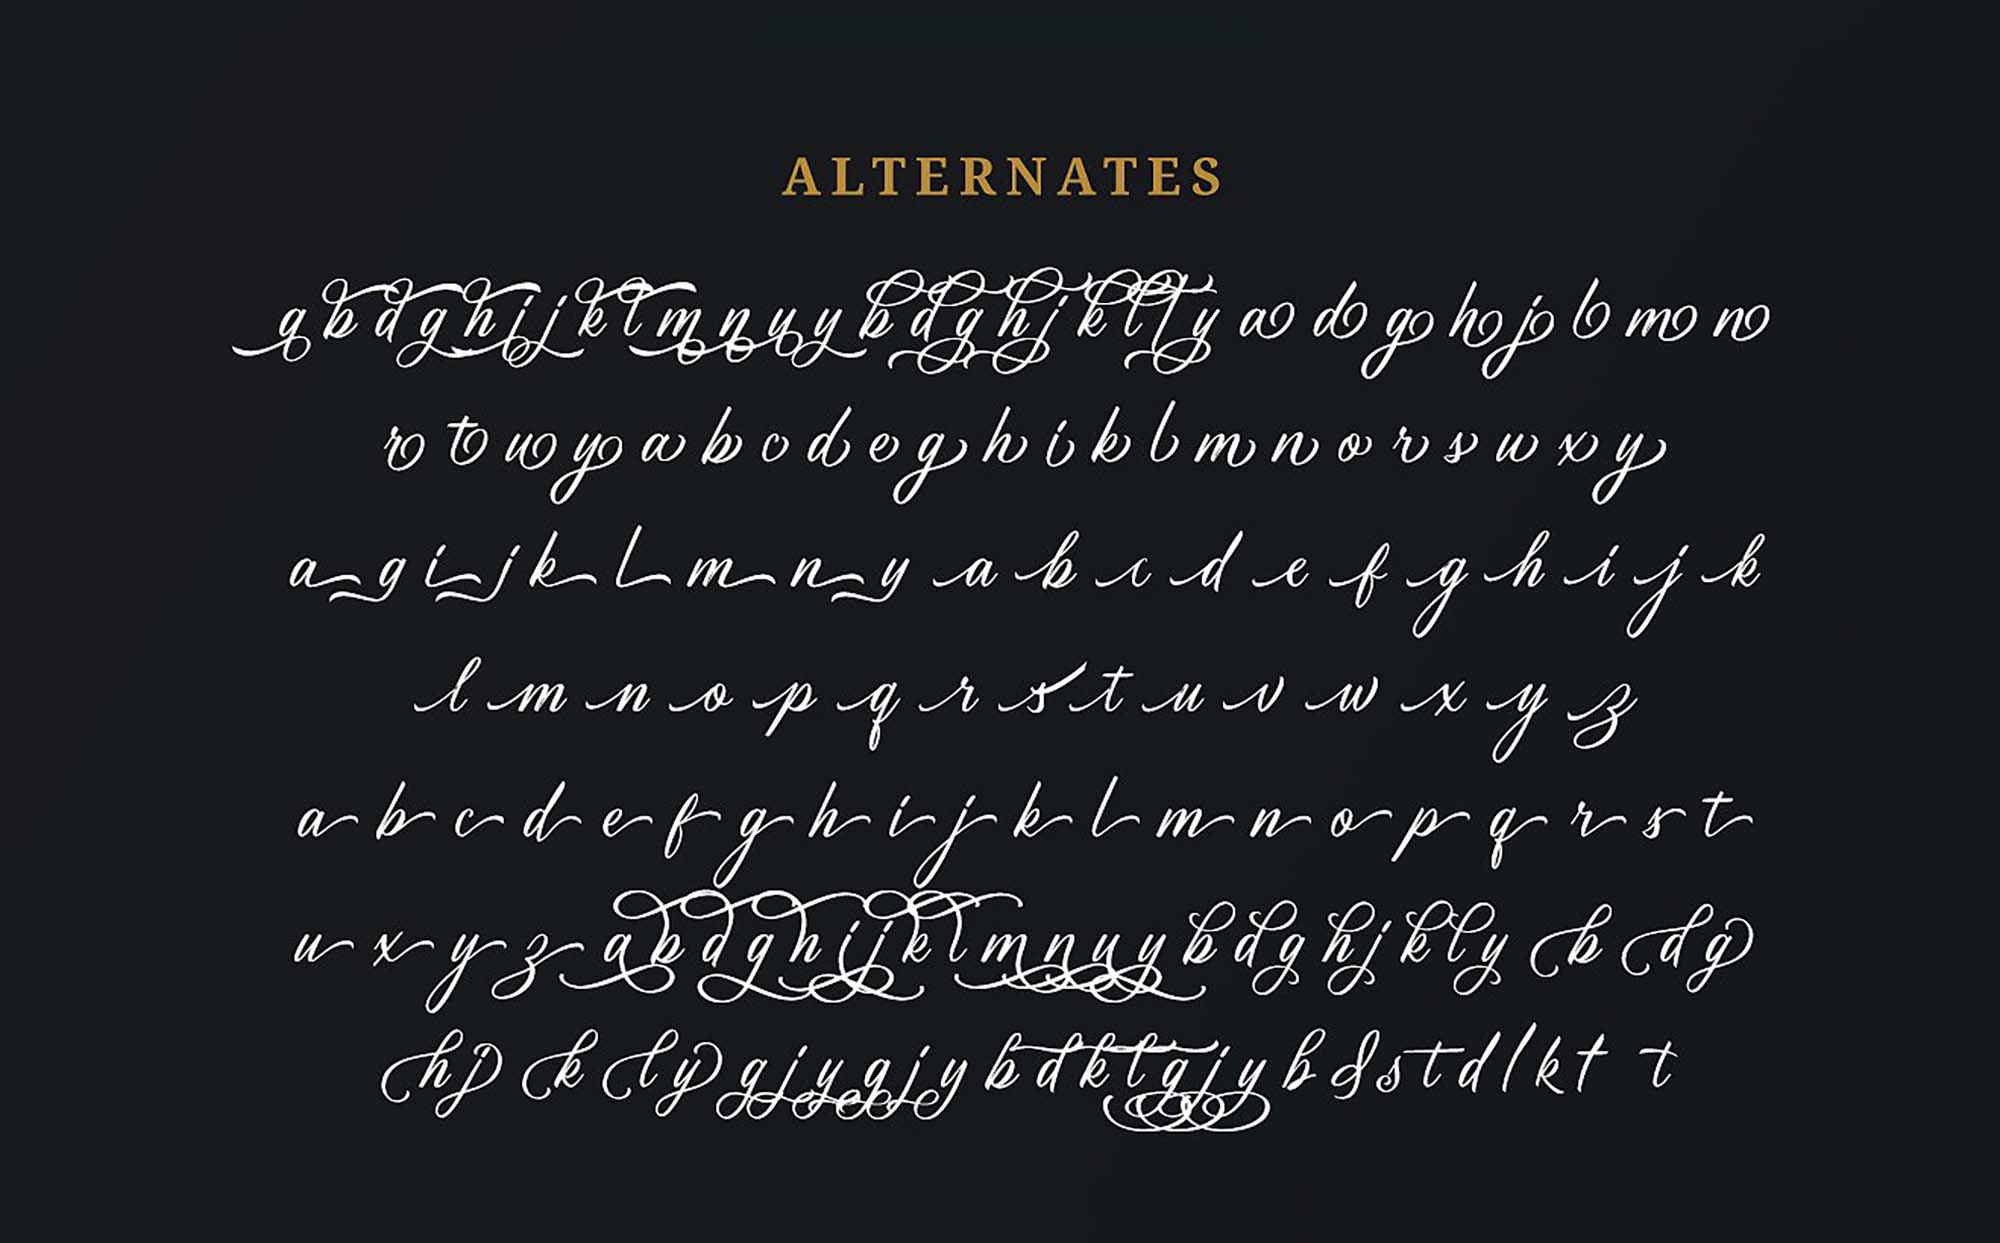 ALTERNATES
a b d g h i j k l m n u y b d g h j k l l y a d g h j l m n
r t u y a b c d e g h i k l m n o r s w x y
a g i j k l m n y a b c d e f g h i j k
l m n o p q r s t u v w x y z
a b c d e f g h i j k l m n o p q r s t
u x y z a b d g h i j k l m n u y b d g h j k l y b d g
h j k l y g j y g j y b d k l g j y b & s t d l k t t